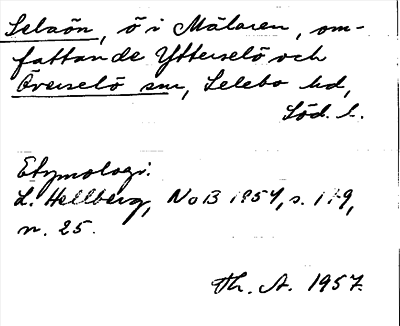 Selaön, ö i Mälaren, om-
fattande Ytterselö och
Överselö snr, Selebo hd,
Söd. l.
Etymologi:
L. Hellberg, NoB 1954, s. 179,
n. 25.
Th. A. 1957.